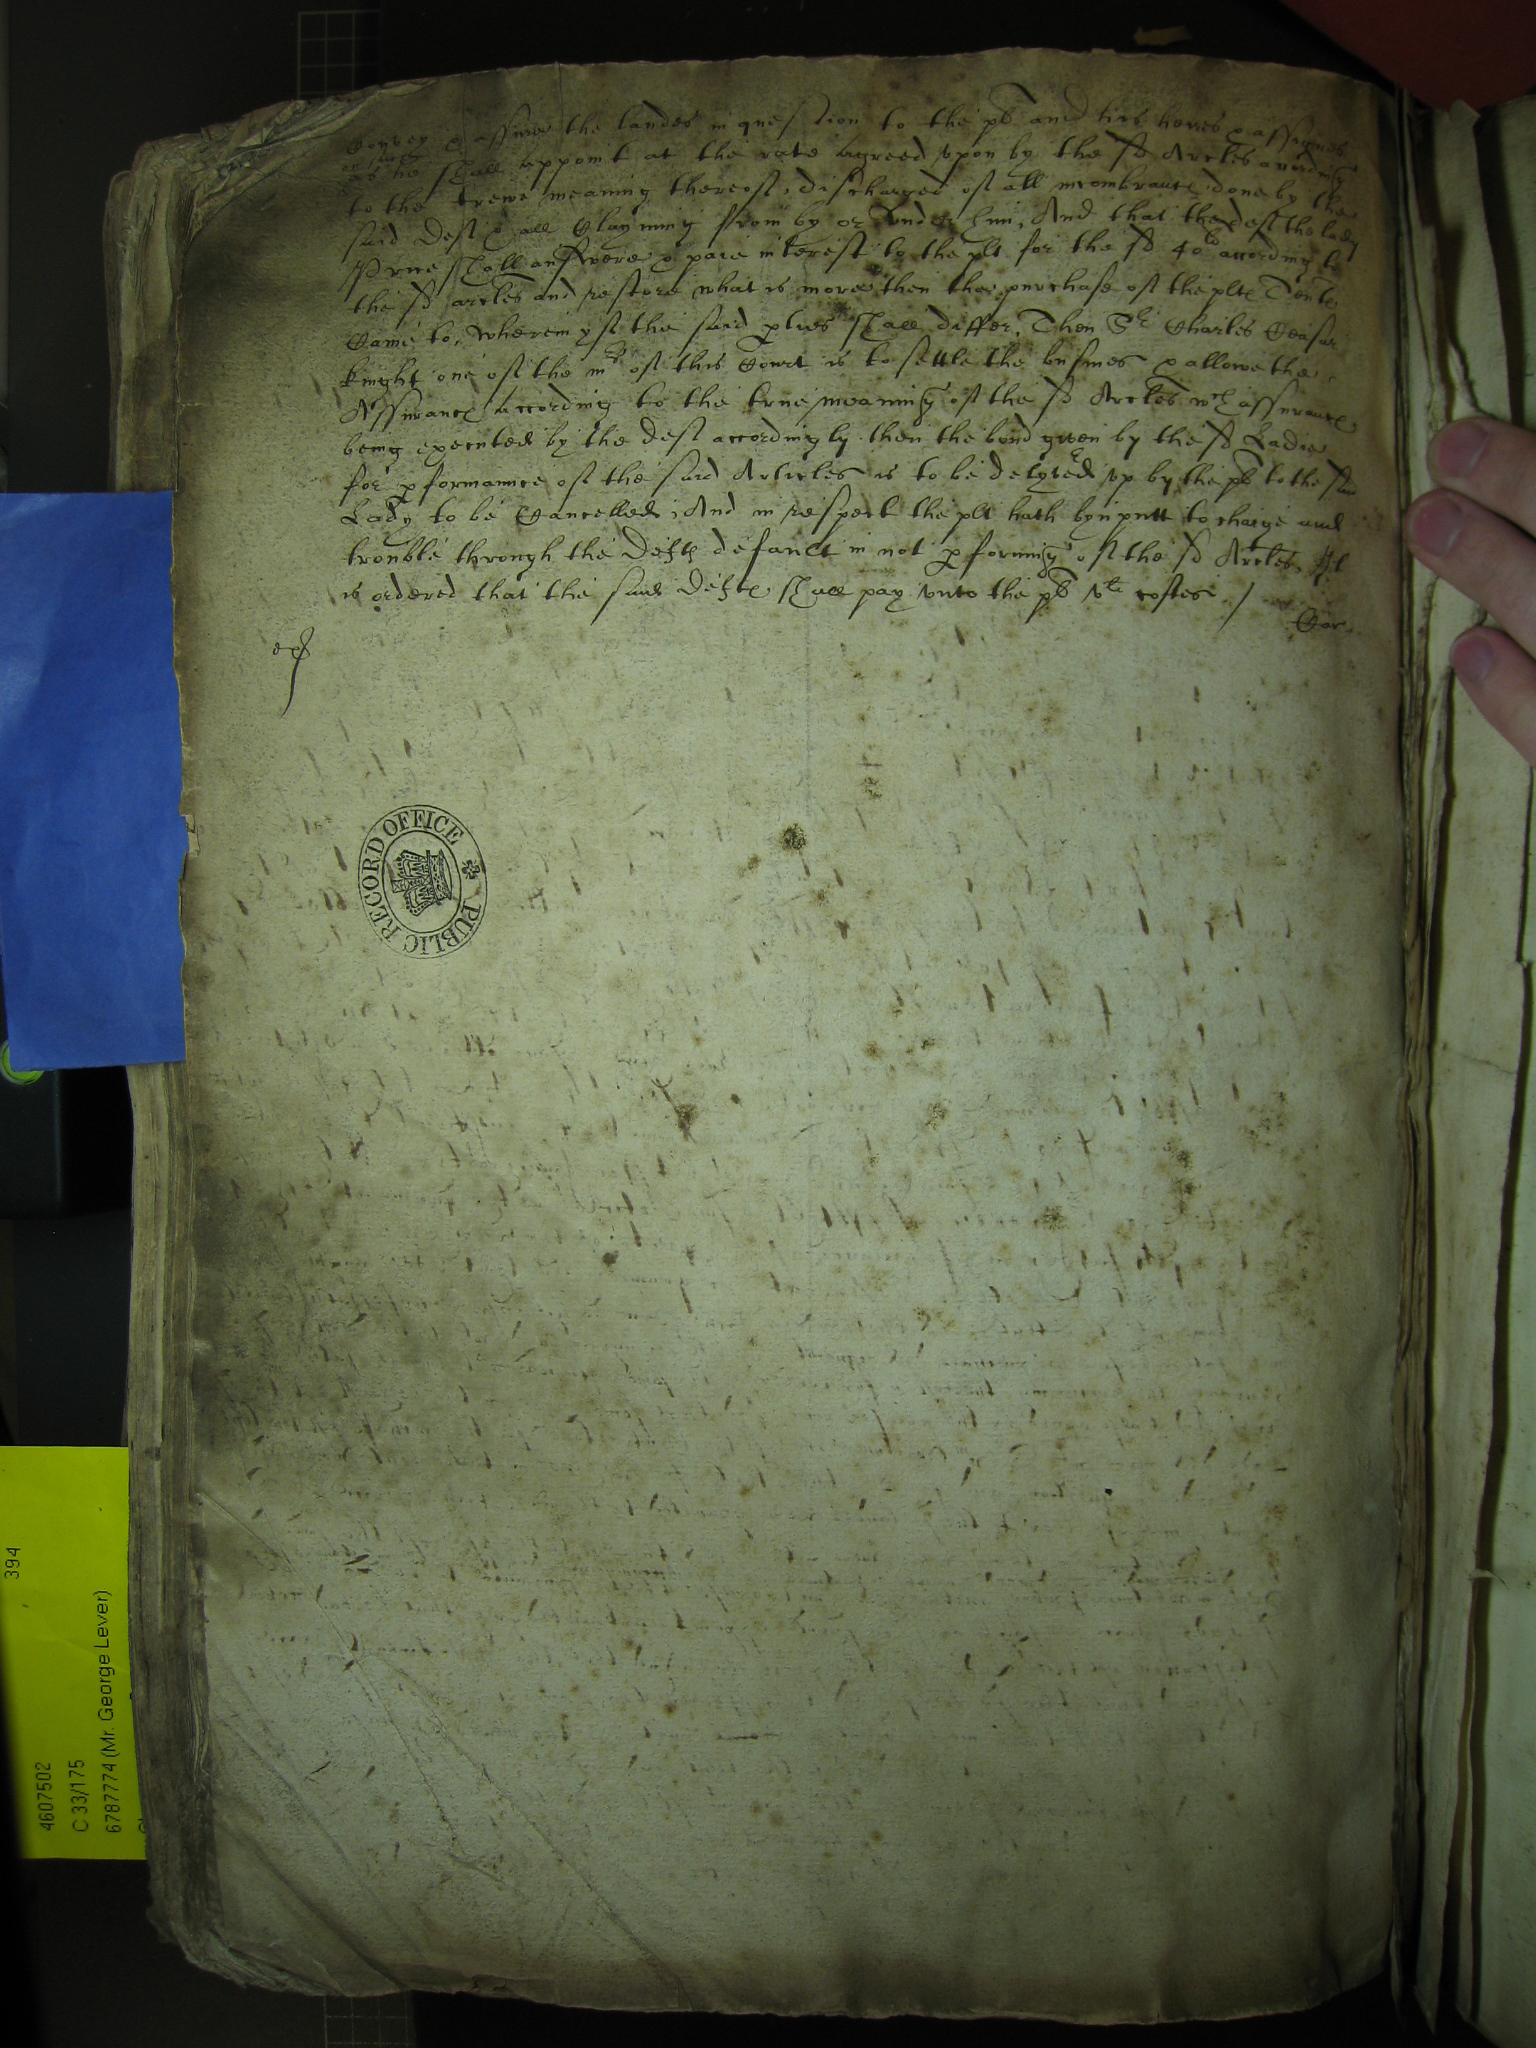 Convey & assure the landes in question to the plt and his heires & assignes
or such
as he shall appoint at the rate agreed vpon by the sd Arcles according
to the trewe meaning thereof, discharged of all incombrance done by the
said Deft & all Clayming from by or vnder him, And that the deft the lady
Price shall answere & paie interest to the plt for the sd 40li according to
the sd arcles and restore what is more then the purchase of the plts
Came to, wherein yf the said pties shall differ, Then Sr Charles Ceasar
knight one of the mrs of this Court is to settle the busines & allowe the
Assurance according to the true meaning of the sd Arcles wch assurance
being executed by the deft accordingly then the bond given by the sd Ladie
for pformannce of the said Articles is to be delyvered vp by the plt to the said
Lady to be Cancelled, And in respect the plt hath byn putt to charge and
trouble through the Defts default in not pforming of the sd Arcles, It
is ordered that the said Defts shall pay vnto the plt vli costes /
Cor
ex
PUBLIC RECORD OFFICE
394
4607502
C 33/175
6787774 (Mr. George Lever)